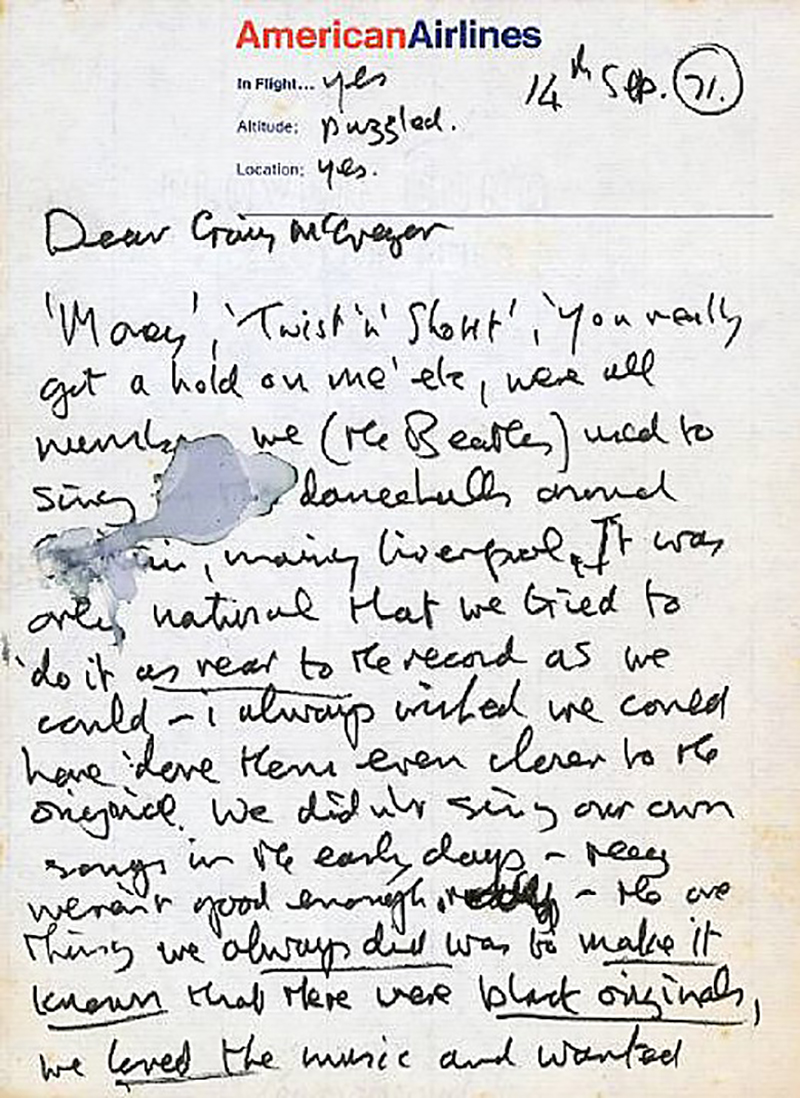 AmericanAirlines
In Flight... yes
14th Sep. 71.
Altitude; puzzled.
Location; yes.
Dear Craig McGregor
'Money', 'Twist 'n' Shout', 'You really
got a hold on me' etc, were all
numbers we (the Beatles) used to
sing dancehalls around
mainly Liverpool. It was
only natural that we tried to
do it as near to the record as we
could – i always wished we could
have done them even closer to the
original. We didn't sing our own
songs in the early days – they
weren't good enough – the one
thing we always did was to make it
known that there were black originals,
we loved the music and wanted